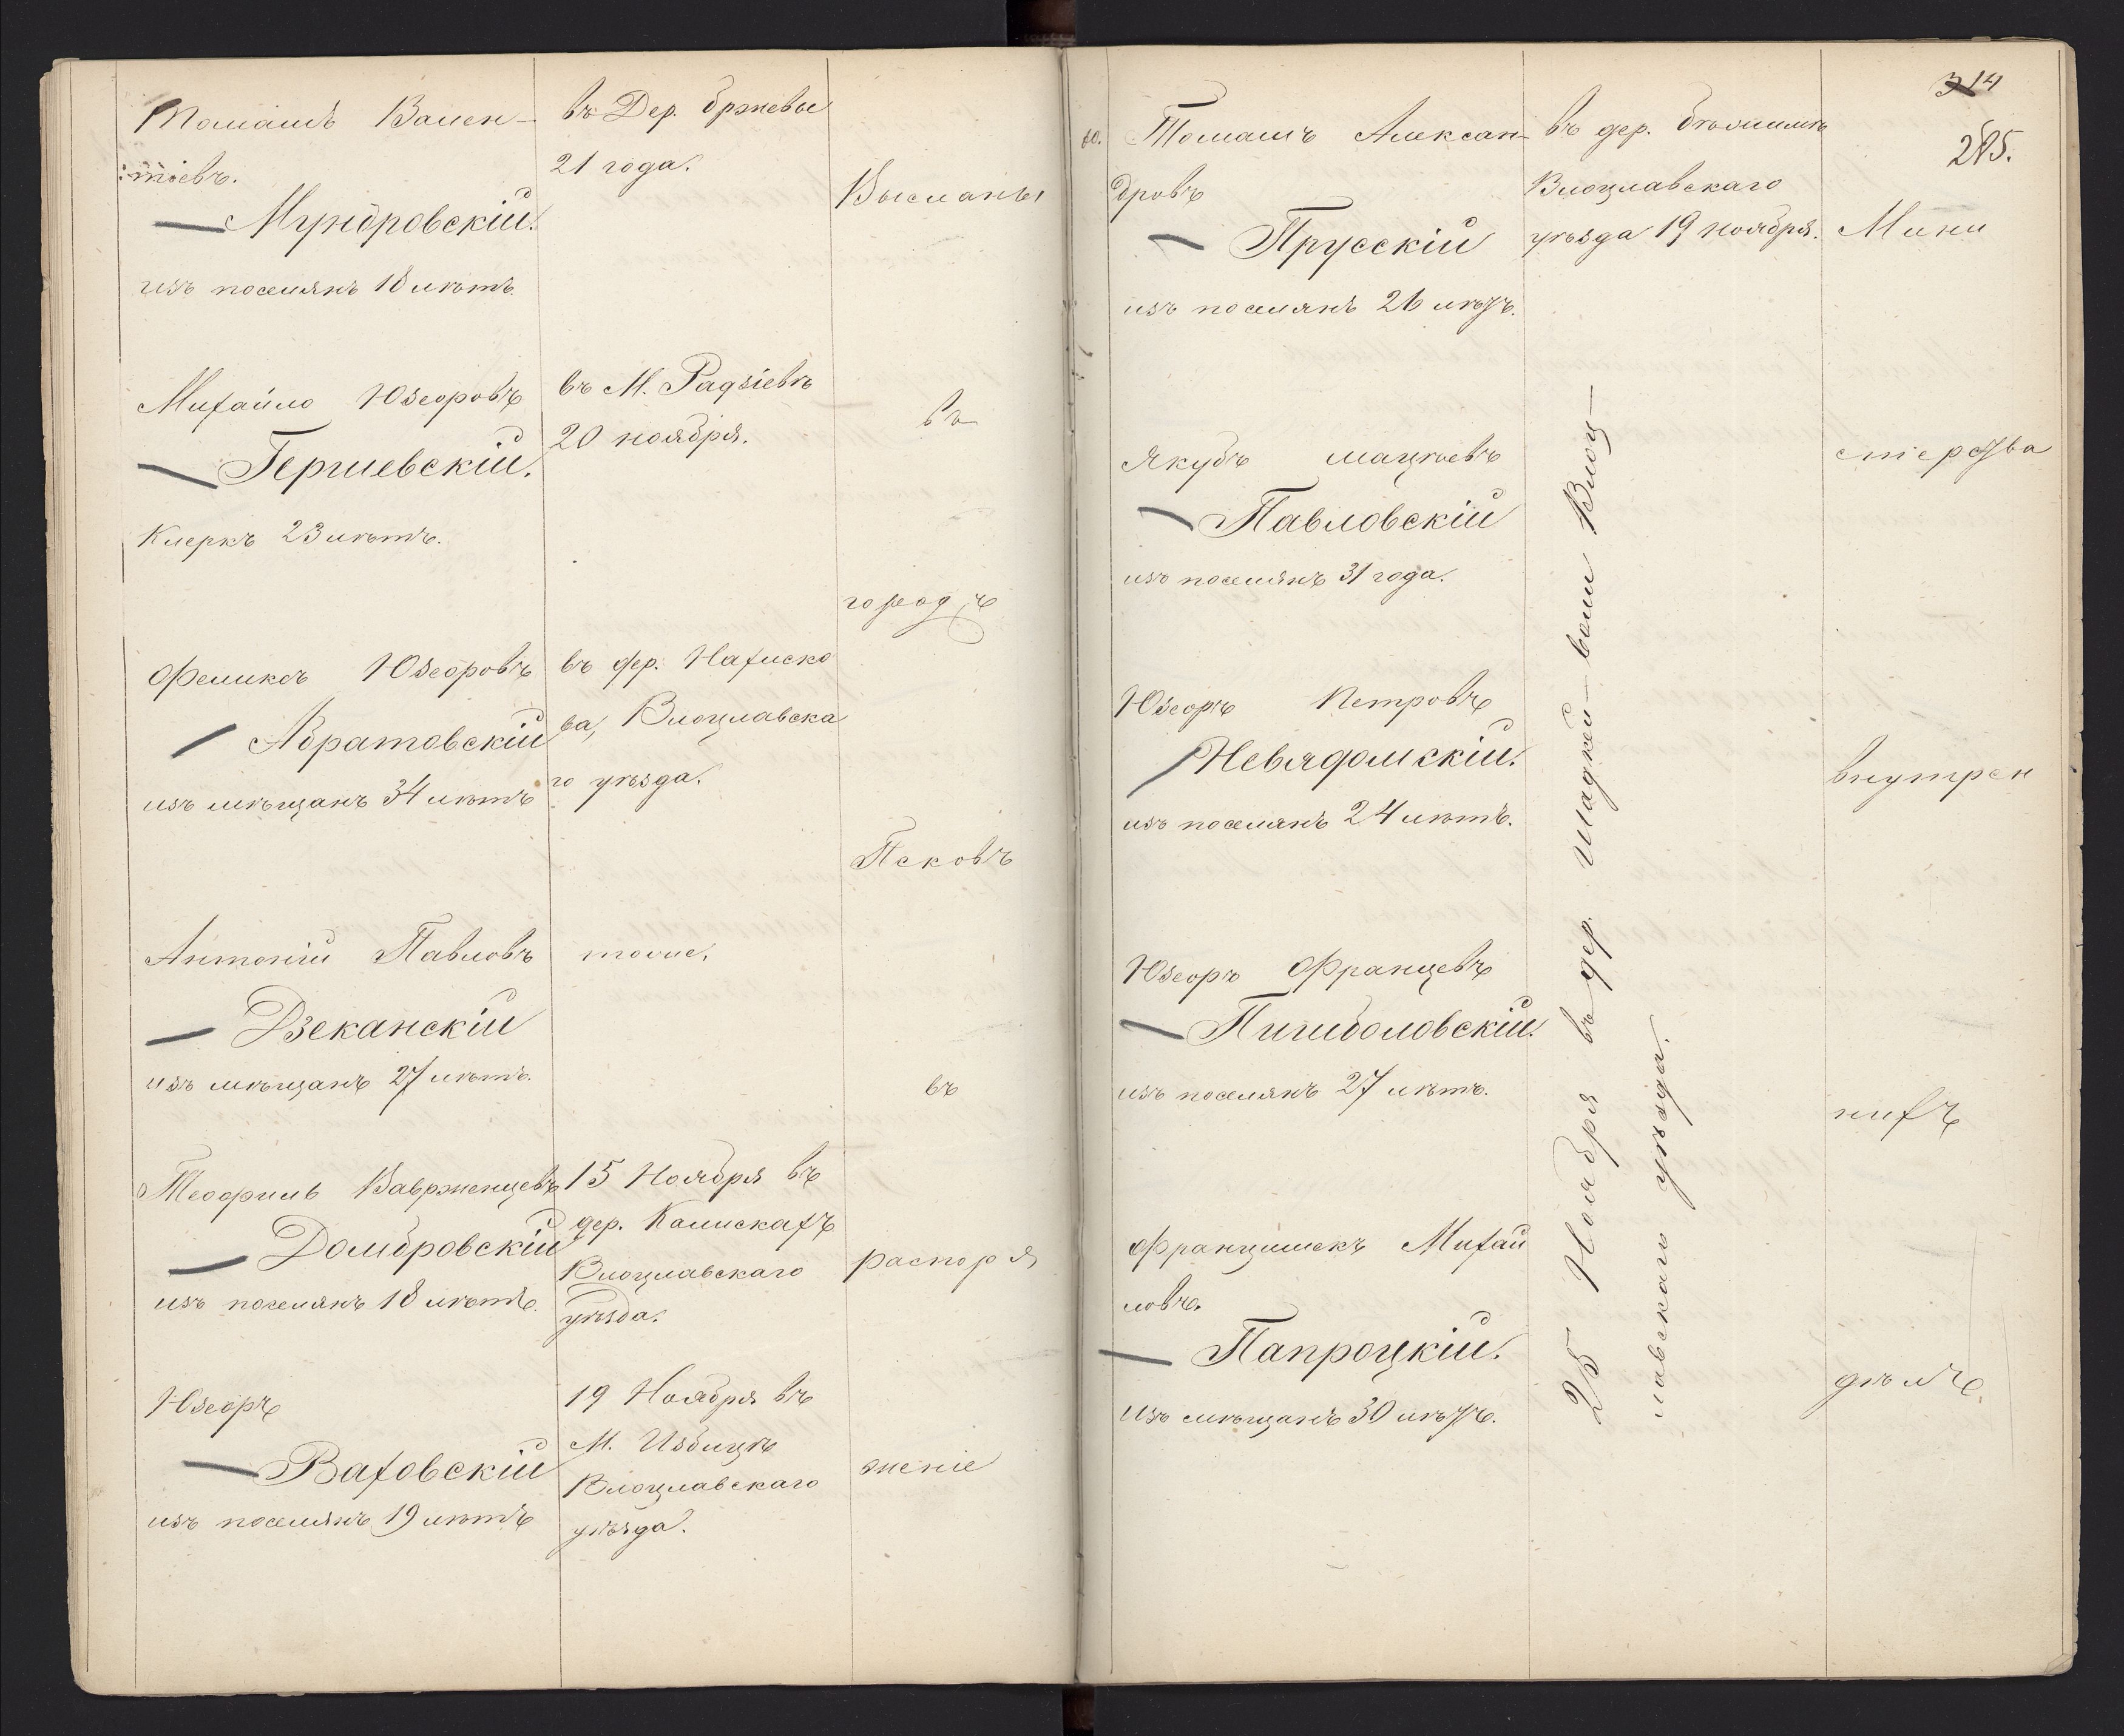 Томашъ Вален-
тіевъ.
Мундровскій.
изъ поселянъ 18 лѣтъ.
въ Дер. бржевы
21 года.
Высланы
Михайло Юзефовъ
Гершевскій.
Клеркъ 23 лѣтъ.
въ М. Радзіевѣ
20 ноября.
въ
городъ
Феликсъ Юзефовъ
Абратовскій
изъ мѣщанъ 34 лѣтъ
въ дер. Нахиско
ва, Влоцлавска
го уѣзда.
Псковъ
Антоній Павловъ
Дзеканскій
изъ мѣщанъ 27 лѣтъ.
тоже.
въ
Теофиль Вавржецевъ
Домбровскій
изъ поселянъ 18 лѣтъ.
15 Ноября въ
дер. Калискахъ
Влоцлавскаго
уѣзда.
распоря
Юзефъ
Ваховскій
изъ поселянъ 19 лѣтъ
19 Ноября въ
М. Избицѣ
Влоцлавскаго
уѣзда.
женіе
314
285.
60. Томашъ Алексан-
дровъ
Прусскій
изъ поселянъ 26 лѣтъ.
въ дер.
Влоцлавскаго
уѣзда 19 ноября.
Мини
Якубъ мацѣевъ
Павловскій
изъ поселянъ 31 года.
стерства
Юзефъ Петровъ
Невядомскій.
изъ поселянъ 24 лѣтъ.
внутрен
Юзефъ Францевъ
Пигиболовскій.
изъ поселянъ 27 лѣтъ.
нихъ
Францишекъ Михай
ловъ.
Папроцкій.
изъ мѣщанъ 30 лѣтъ.
дѣлъ.
25 Ноября въ дер. Шадкей-воли Влоц-
лавскаго уѣзда.